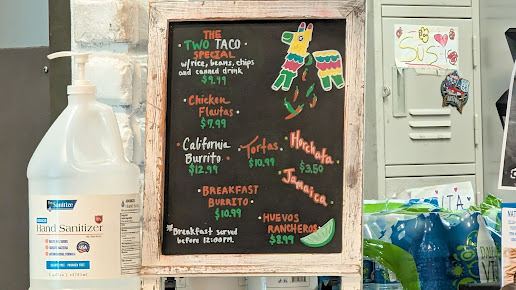 THE
TWO TACO
SPECIAL
w/rice, beans, chips
and canned drink
$9.99
Chicken
Flautas
$7.99
California
Burrito
$12.99
Tortas
$10.99
Horchata
$3.50
Jamaica
BREAKFAST
BURRITO
$10.99
HUEVOS
RANCHEROS
$8.99
*Breakfast served
before 12:00PM.
Sanitizer
Hand Sanitizer
USA